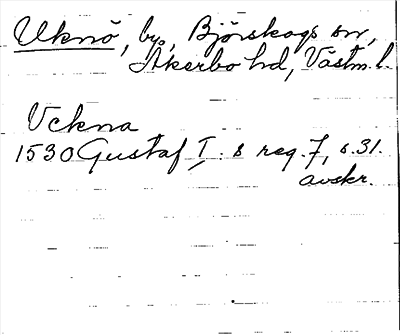 Uknö, by, Björskogs sn,
Åkerbo hd, Västm. l.
Vckna
1530 Gustaf I:s reg. 7, s. 31.
avskr.